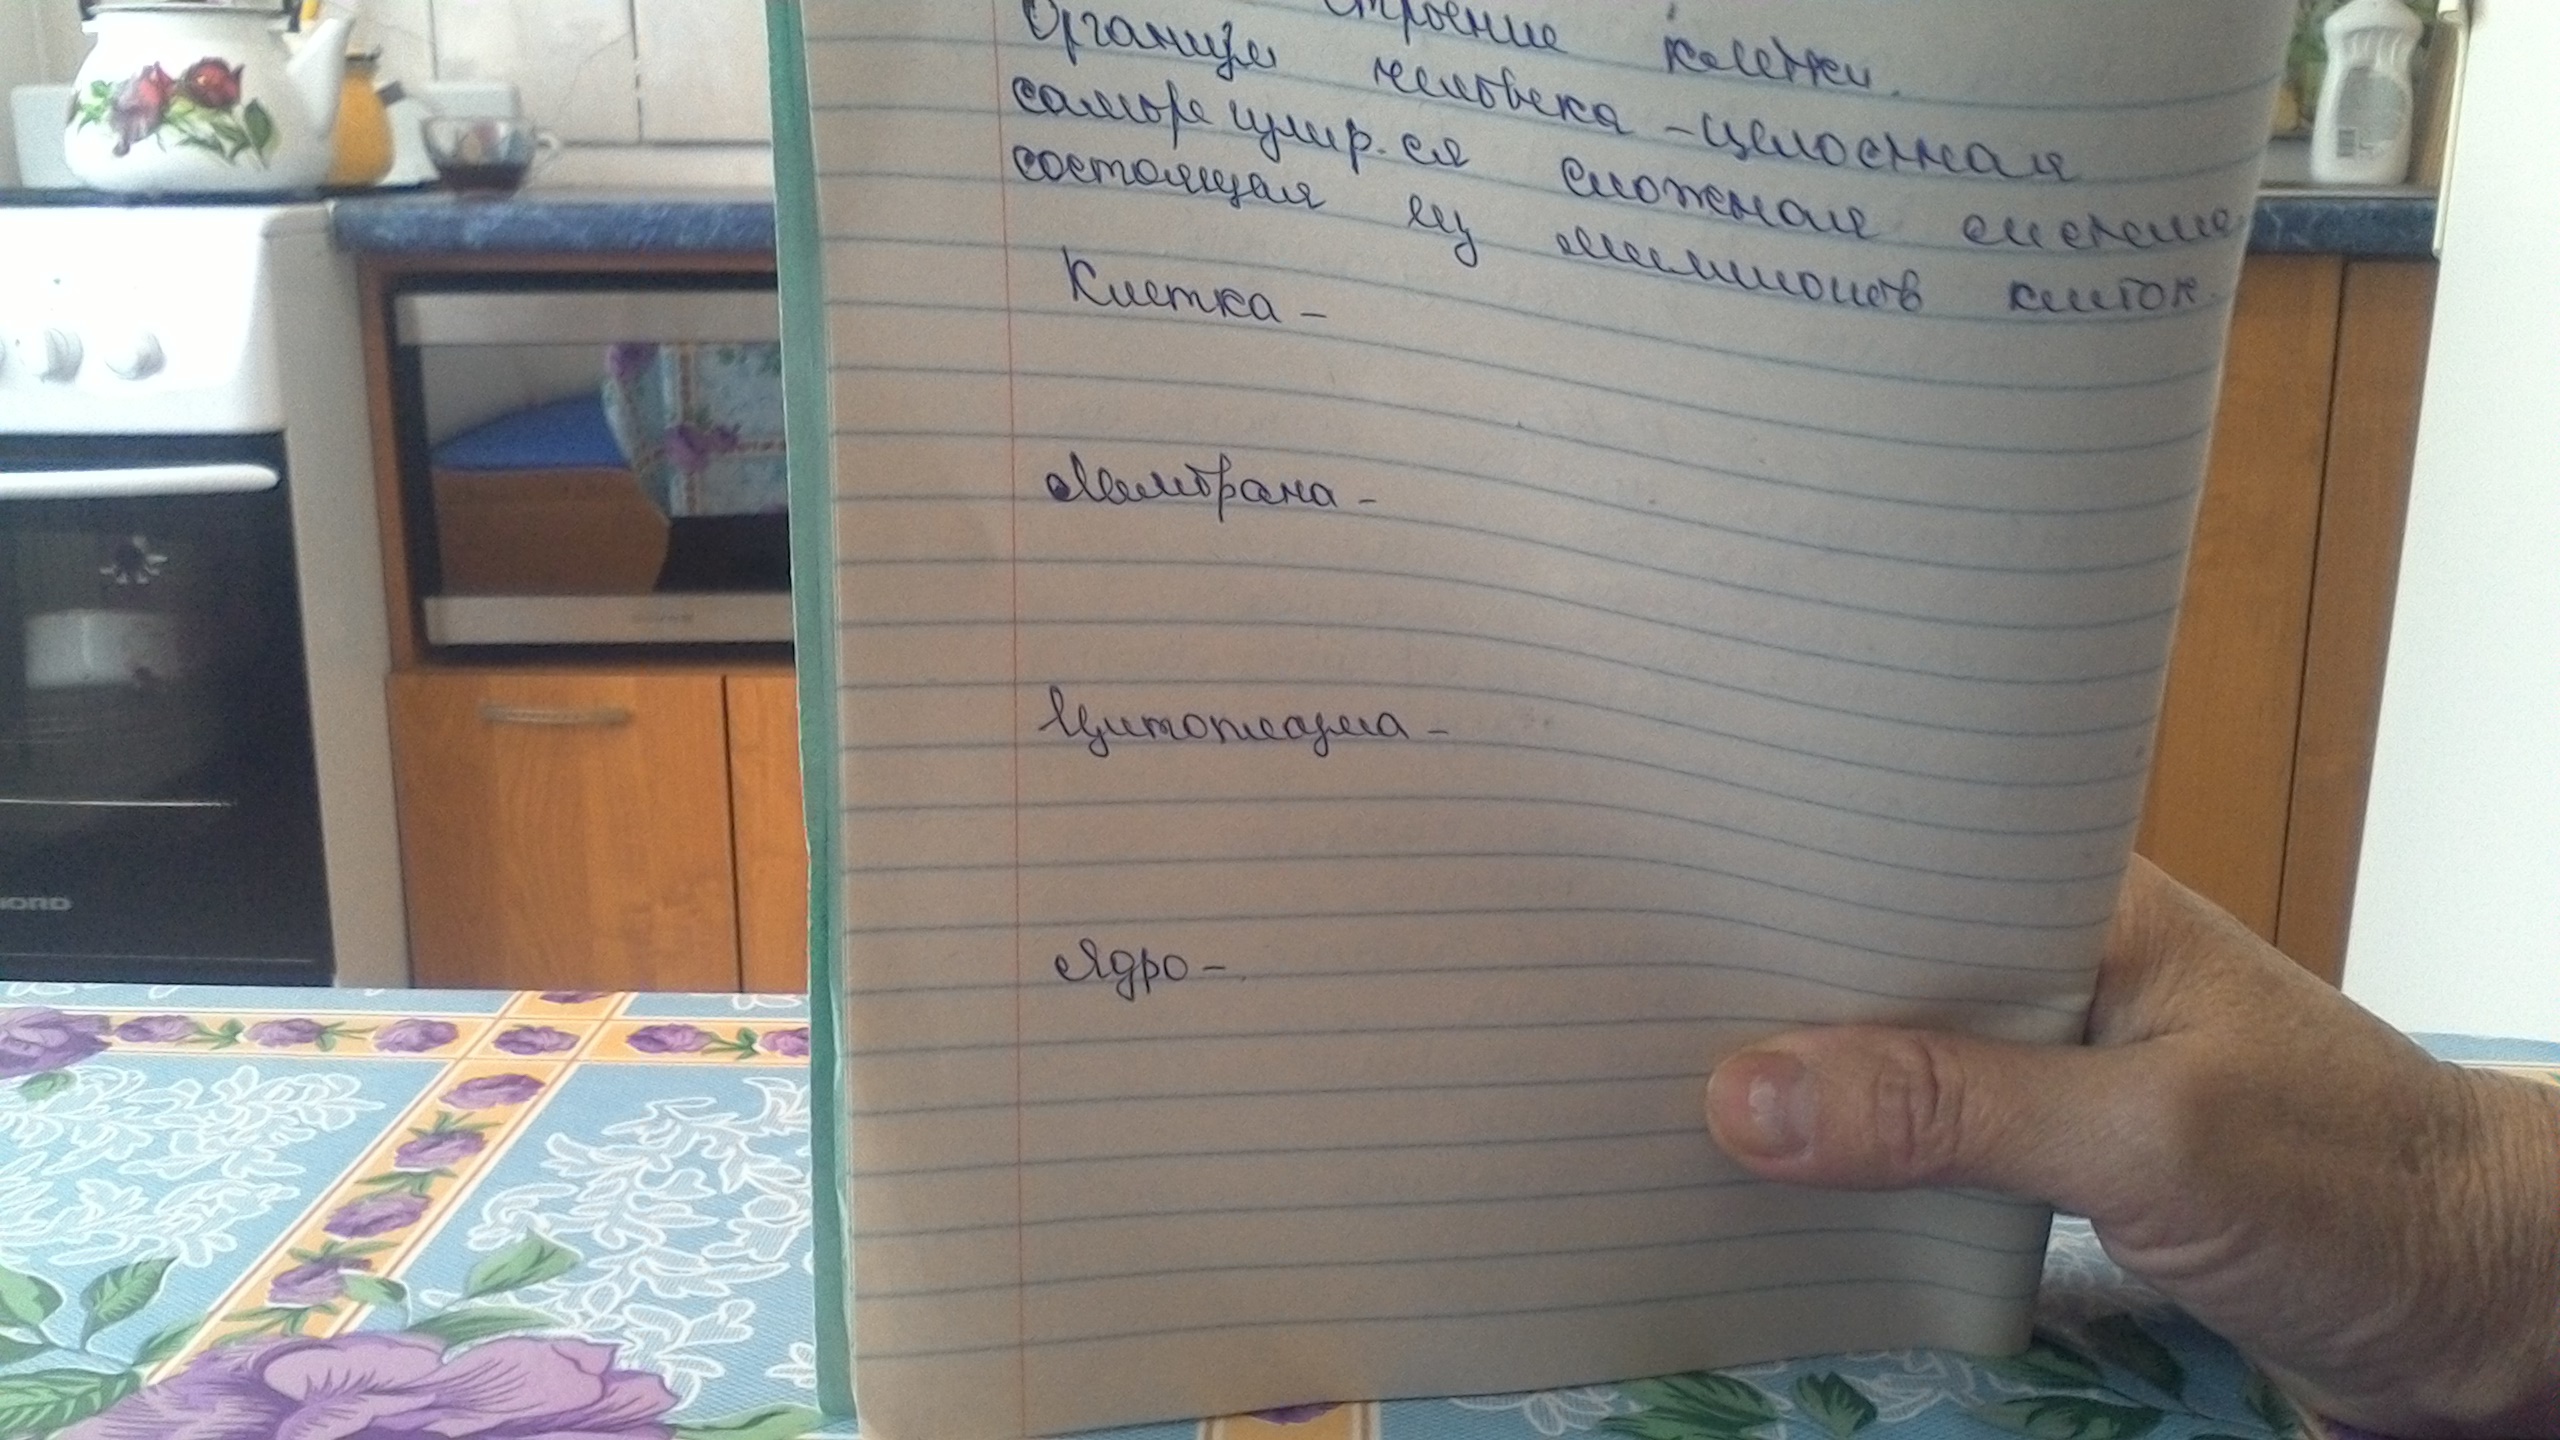 Строение клетки.
Организм человека - целостная
саморегулир.ся сложная система
состоящая из миллионов клеток.
Клетка -
Мембрана -
Цитоплазма -
Ядро -
NORD